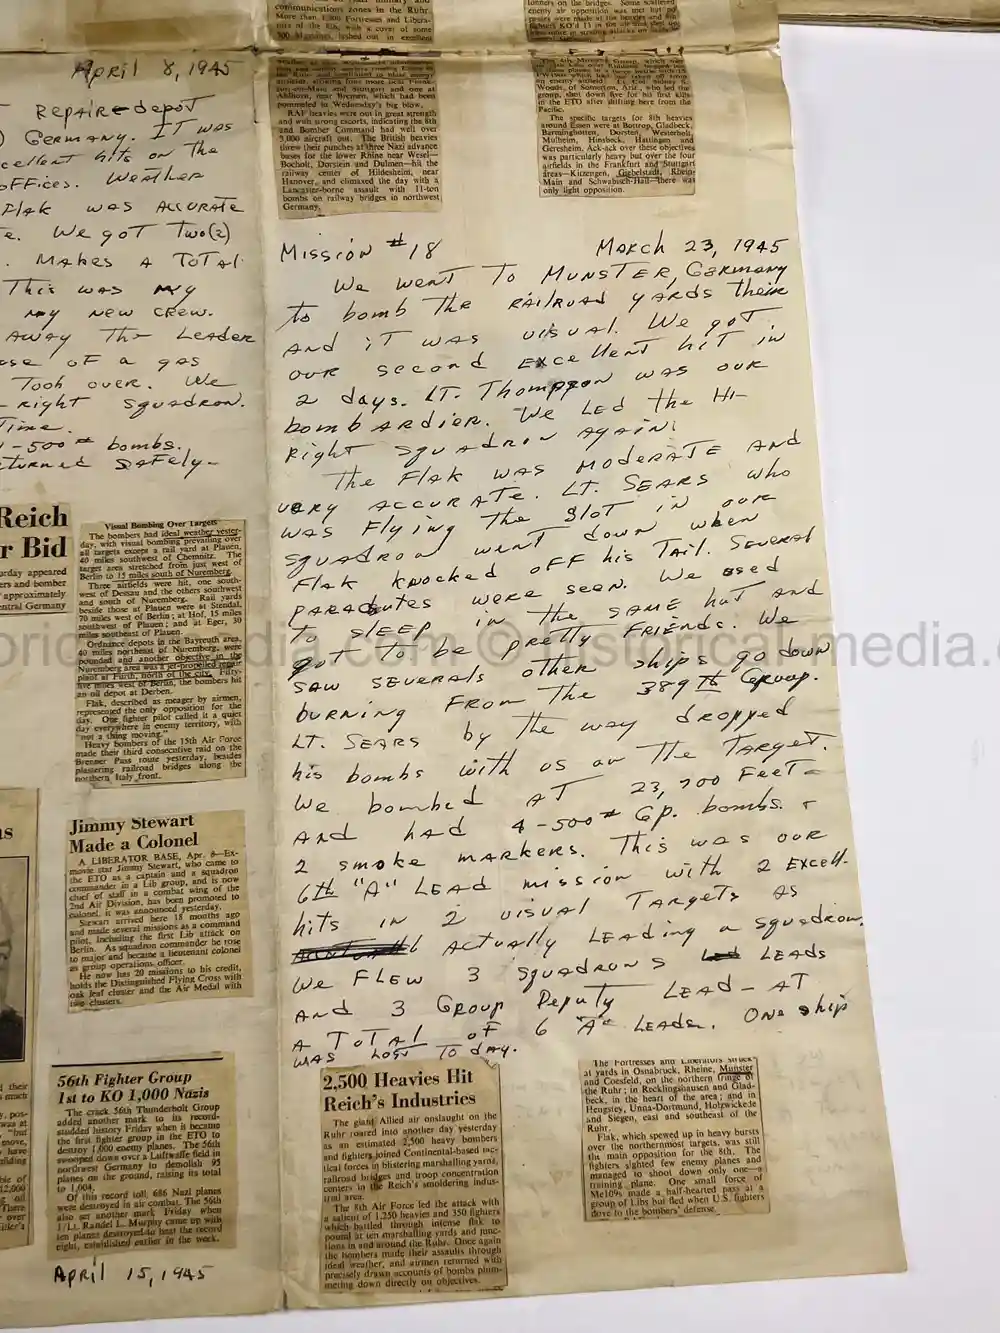 communications zones in the Ruhr.
April 8, 1945
REPAIR depot
GERMANY. IT was
hits on the
offices. Weather
Flak was ACCURATE
We got Two(2)
MAKES A TOTAL
This was my
my new crew.
AWAY The LEADER
of a gas
Took over. We
right squadron.
Time.
-500# bombs.
eturned SAFELY-
Reich
r Bid
urday appeared
ers and bomber
approximately
entral Germany
Visual Bombing Over Targets
The bombers had ideal weather yester-
day, with visual bombing prevailing over
all targets except a rail yard at Plauen,
40 miles southwest of Chemnitz. The
target area stretched from just west of
Berlin to 15 miles south of Nuremberg.
Three airfields were hit, one south-
west of Dessau and the others southwest
and south of Nuremberg. Rail yards
beside those at Plauen were at Stendal,
70 miles west of Berlin; at Hof, 15 miles
southwest of Plauen; and at Eger, 30
miles southeast of Plauen.
Ordnance depots in the Bayreuth area,
40 miles northeast of Nuremberg, were
pounded and another objective in the
Nuremberg area was a jet-propelled repair
plant at Furth, north of the city. Fifty-
five miles west of Berlin, the bombers hit
an oil depot at Derben.
Flak, described as meager by airmen,
represented the only opposition for the
day. One fighter pilot called it a quiet
day everywhere in enemy territory, with
"not a thing moving."
Heavy bombers of the 15th Air Force
made their third consecutive raid on the
Brenner Pass route yesterday, besides
plastering railroad bridges along the
northern Italy front.
Jimmy Stewart
Made a Colonel
A LIBERATOR BASE, Apr. 8—Ex-
movie star Jimmy Stewart, who came to
the ETO as a captain and a squadron
commander in a Lib group, and is now
chief of staff in a combat wing of the
2nd Air Division, has been promoted to
colonel, it was announced yesterday.
Stewart arrived here 18 months ago
and made several missions as a command
pilot, including the first Lib attack on
Berlin. As squadron commander he rose
to major and became a lieutenant colonel
as group operations officer.
He now has 20 missions to his credit,
holds the Distinguished Flying Cross with
oak leaf cluster and the Air Medal with
two clusters.
56th Fighter Group
1st to KO 1,000 Nazis
The crack 56th Thunderbolt Group
added another mark to its record-
studded history Friday when it became
the first fighter group in the ETO to
destroy 1,000 enemy planes. The 56th
swooped down over a Luftwaffe field in
northwest Germany to demolish 95
planes on the ground, raising its total
to 1,004.
Of this record toll, 686 Nazi planes
were destroyed in air combat. The 56th
also set another mark Friday when
1/Lt. Randel L. Murphy came up with
ten planes destroyed to beat the record
eight, established earlier in the week.
April 15, 1945
pummeled in Wednesday's big blow.
RAF heavies were out in great strength
and with strong escorts, indicating the 8th
and Bomber Command had well over
3,000 aircraft out. The British heavies
threw their punches at three Nazi advance
bases for the lower Rhine near Wesel—
Bocholt, Dorstein and Dulmen—hit the
railway center of Hildesheim, near
Hanover, and climaxed the day with a
Lancaster-borne assault with 11-ton
bombs on railway bridges in northwest
Germany.
Woods, of Somerton, Ariz., who led the
group, shot down five for his first kills
in the ETO after shifting here from the
Pacific.
The specific targets for 8th heavies
around Essen were at Bottrop, Gladbeck,
Barminghotten, Dorsten, Westerholt,
Mulheim, Hinsbeck, Hattingen and
Geresheim. Ack-ack over these objectives
was particularly heavy but over the four
airfields in the Frankfurt and Stuttgart
areas—Kitzengen, Giebelstadt, Rhein-
Main and Schwabisch-Hall—there was
only light opposition.
Mission #18 March 23, 1945
We went To MUNSTER, Germany
to bomb the RAILROAD YARDS their
And it was visual. We got
our second Excellent hit in
2 days. LT. Thompson was our
bombARdier. We LED the Hi-
Right squadron Again!
The Flak was MODERATE and
very ACCURATE. LT. SEARS who
was Flying the Slot in our
squadron went down when
Flak knocked off his Tail. Several
PARAchutes were seen. We used
To sleep in the same hut and
got To be pretty Friends. We
saw severals other ships go down
burning From the 389th Group.
LT. SEARS by the way dropped
his bombs with us on The TARGET.
We bombed AT 23,700 Feet-
And had 4-500# Gp. bombs. +
2 smoke markers. This was our
6th "A" LEAD mission with 2 Excell-
hits in 2 visual Targets as
actually LEADing a squadron.
We FLEW 3 squadrons LEADS
And 3 Group Deputy LEAD - AT
A TOTAL of 6 "A" LEADs. One ship
was Lost To day.
2,500 Heavies Hit
Reich's Industries
The giant Allied air onslaught on the
Ruhr roared into another day yesterday
as an estimated 2,500 heavy bombers
and fighters joined Continental-based tac-
tical forces in blistering marshalling yards,
railroad bridges and troop concentration
centers in the Reich's smoldering indus-
trial area.
The 8th Air Force led the attack with
a salient of 1,250 heavies and 350 fighters
which battled through intense flak to
pound at ten marshalling yards and junc-
tions in and around the Ruhr. Once again
the bombers made their assaults through
ideal weather, and airmen returned with
precisely drawn accounts of bombs plum-
meting down directly on objectives.
The Fortresses and Liberators struck
at yards in Osnabruck, Rheine, Munster
and Coesfeld, on the northern fringe of
the Ruhr; in Recklinghausen and Glad-
beck, in the heart of the area; and in
Hengstey, Unna-Dortmund, Holzwickede
and Siegen, east and southeast of the
Ruhr.
Flak, which spewed up in heavy bursts
over the northernmost targets, was still
the main opposition for the 8th. The
fighters sighted few enemy planes and
managed to shoot down only one—a
training plane. One small force of
Me109s made a half-hearted pass at a
group of Libs but fled when U.S. fighters
dove to the bombers' defense.